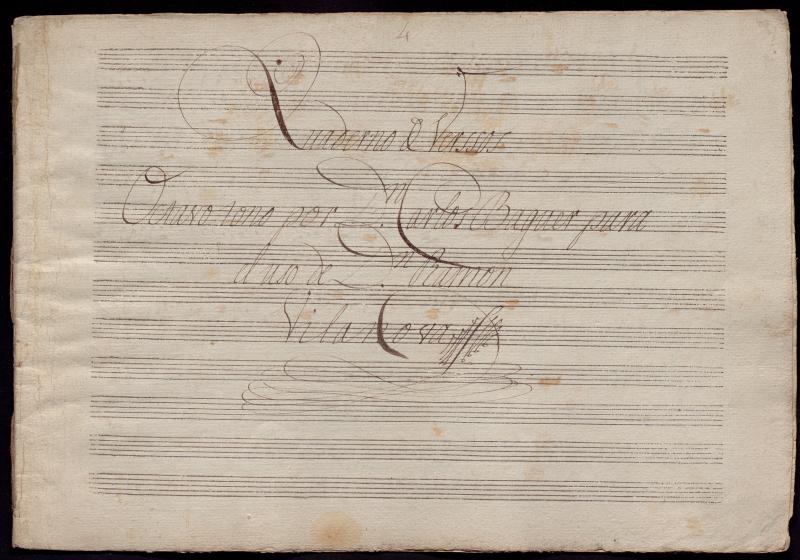 4
Quaderno de Versos
Octavo tono por Dn. Carlos Baguer para
el uso de Dn. Ramon
Vilanova